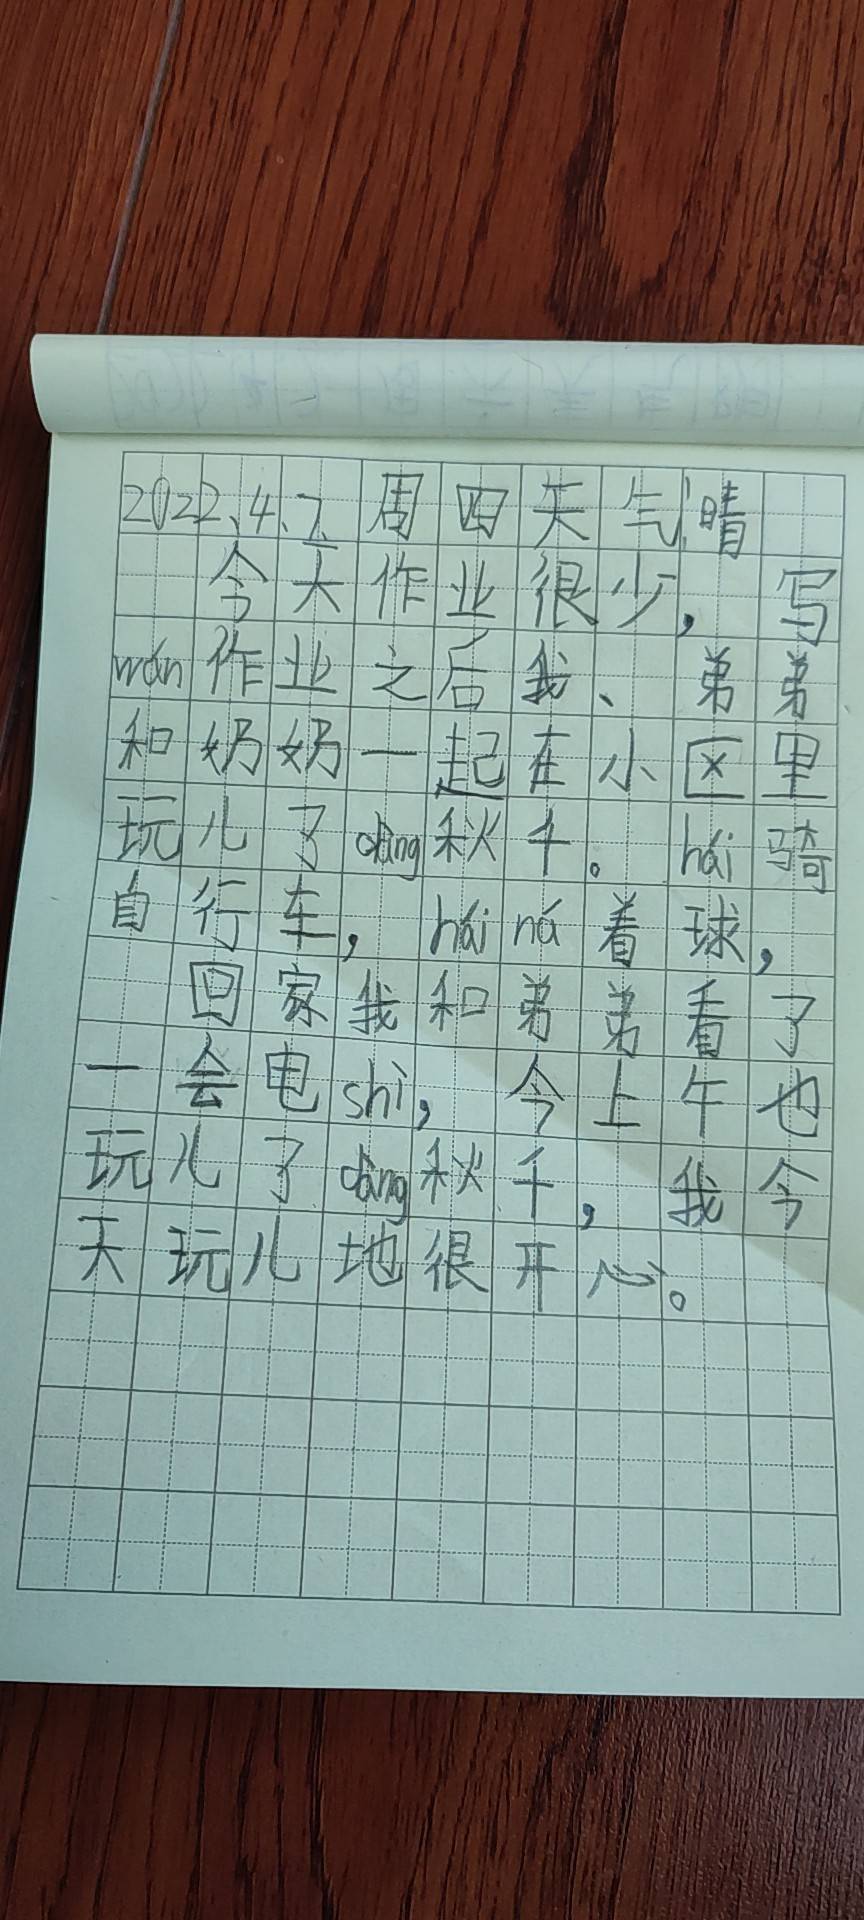 2022.4.7. 周四天气晴
今天作业很少，写
wán作业之后我、弟弟
和奶奶一起在小区里
玩儿了dàng秋千。hái骑
自行车，hái ná着球，
回家我和弟弟看了
一会电shì，今上午也
玩儿了dàng秋千，我今
天玩儿地很开心。